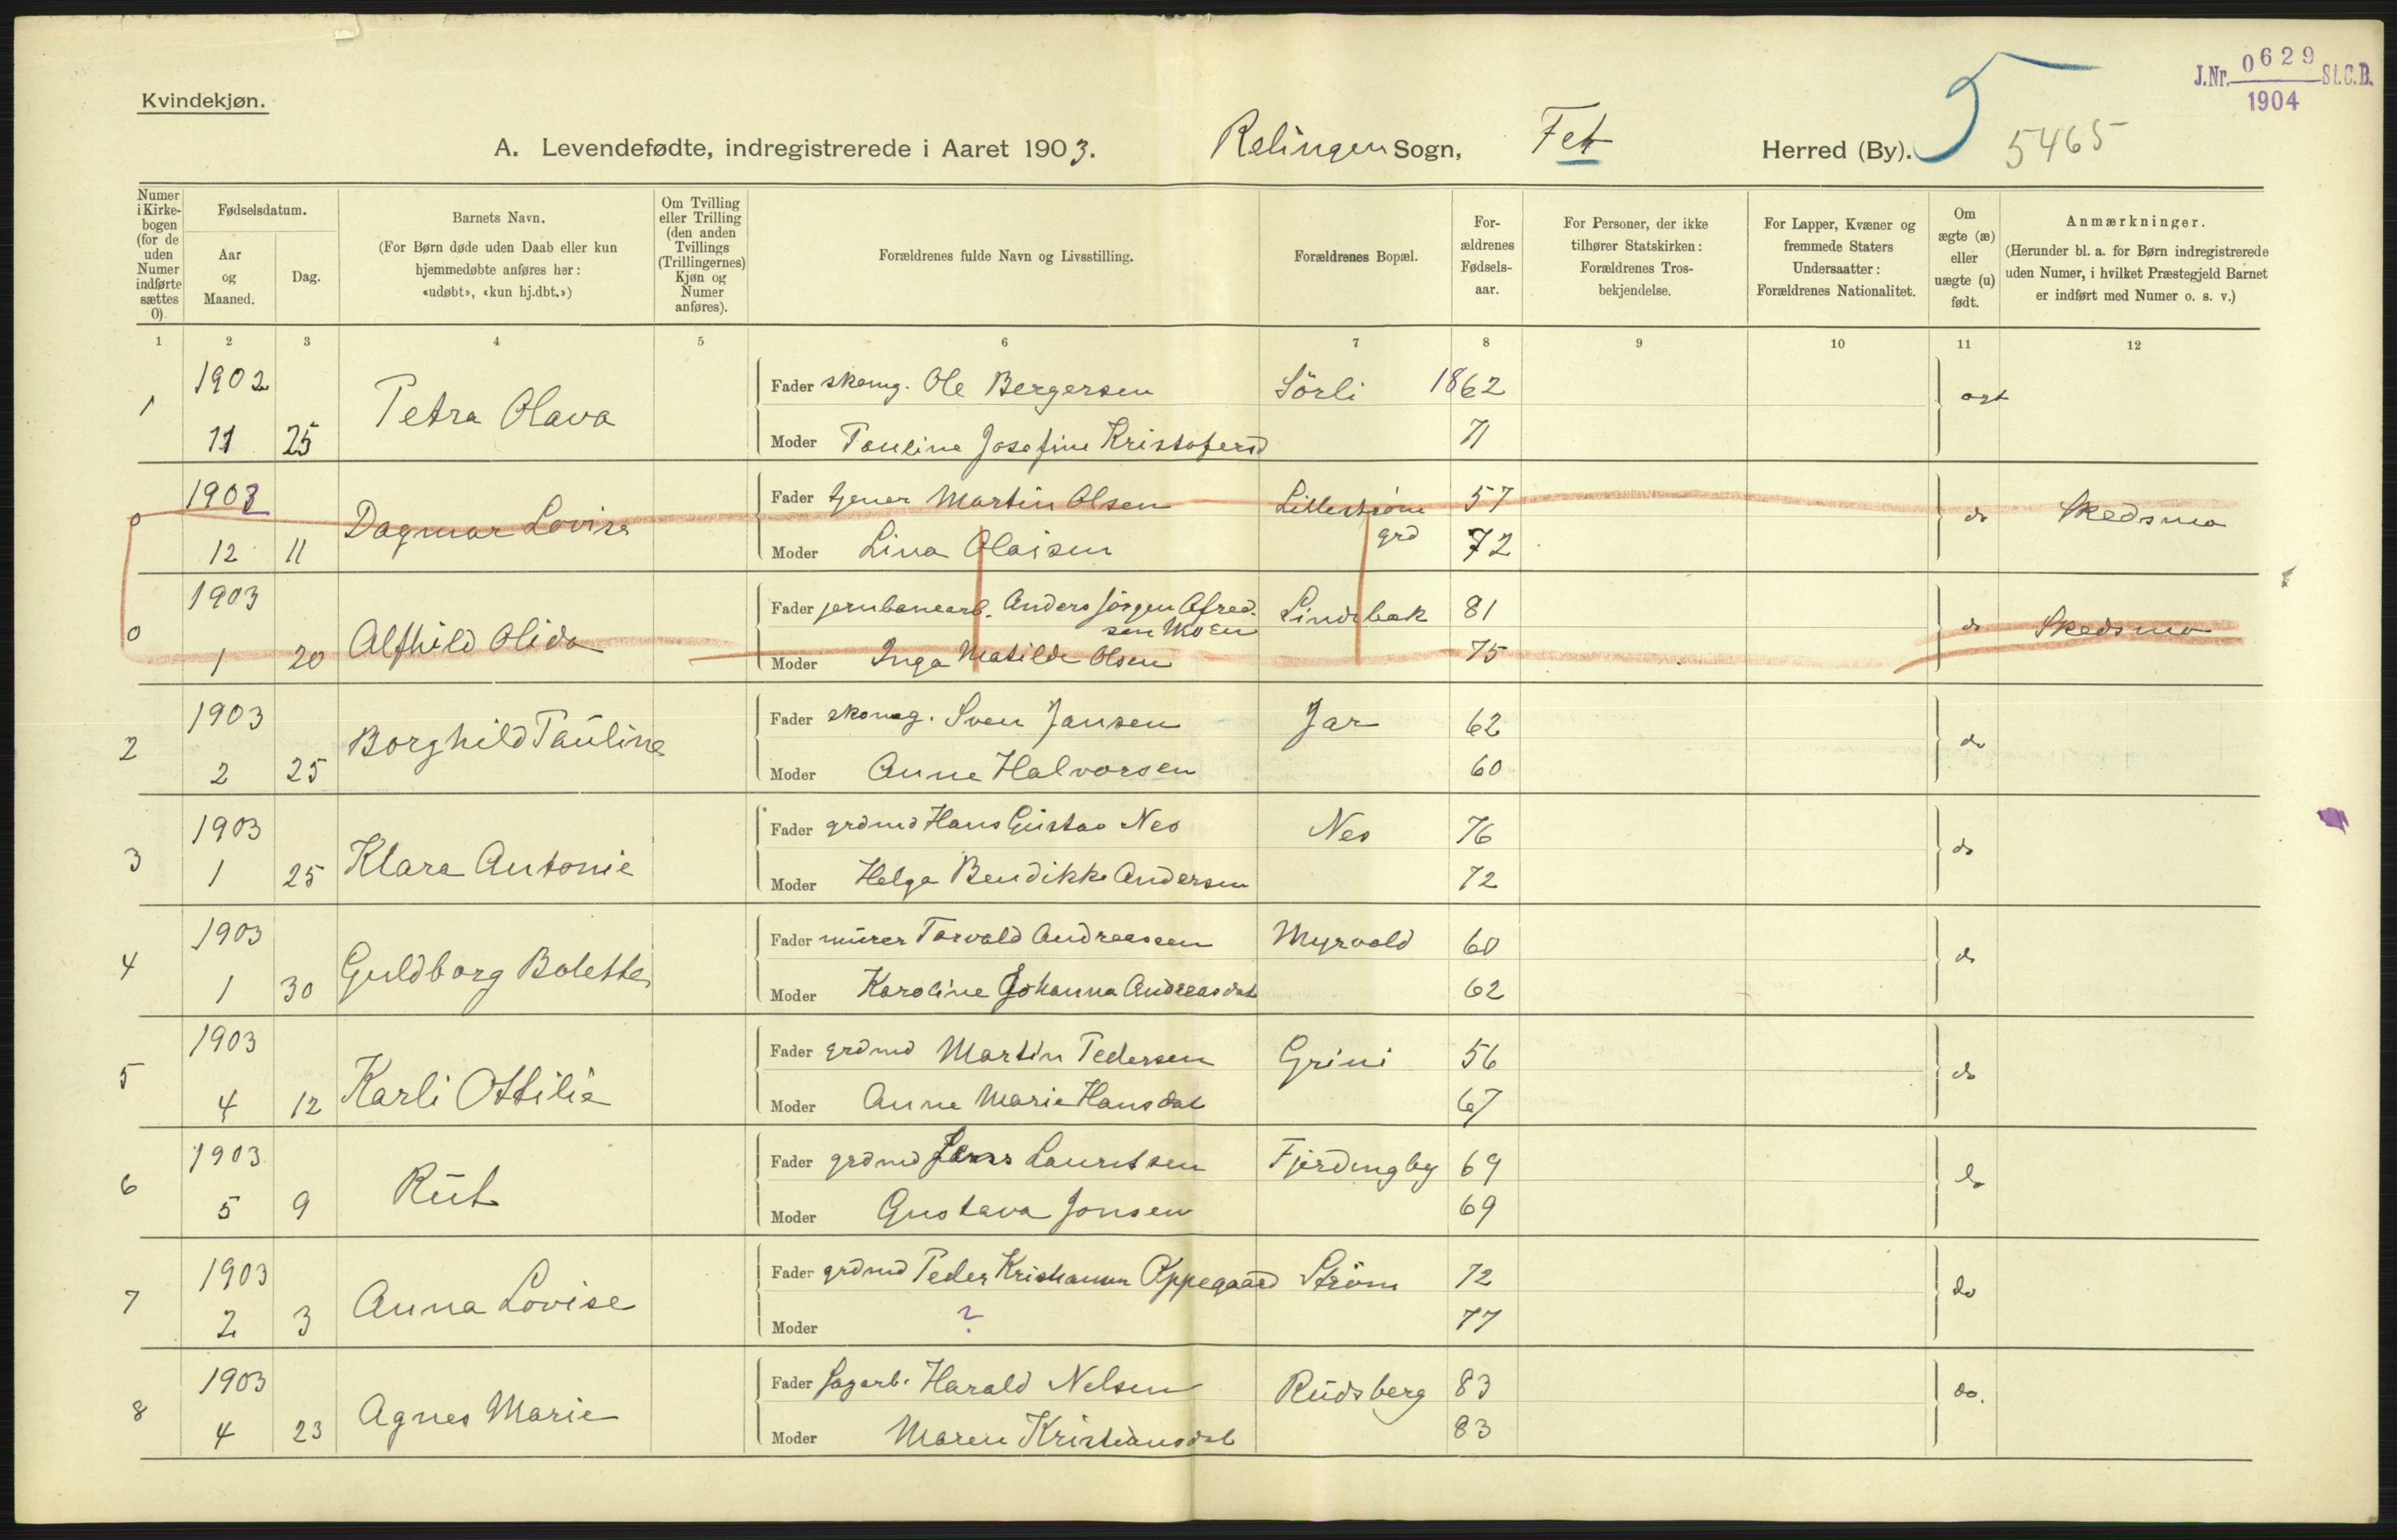 J.Nr. 0629 St.C.B.
1904
Kvindekjøn.
A. Levendefødte, indregistrerede i Aaret 1903. Relingen Sogn, Fet Herred (By). 5 5465
Numer i Kirkebogen (for de uden Numer indførte sættes 0).
Fødselsdatum.
Aar og Maaned.
Dag.
Barnets Navn.
(For Børn døde uden Daab eller kun hjemmedøbte anføres her: «udøbt», «kun hj.dbt.»)
Om Tvilling eller Trilling (den anden Tvillings (Trillingernes) Kjøn og Numer anføres).
Forældrenes fulde Navn og Livsstilling.
Forældrenes Bopæl.
Forældrenes Fødselsaar.
For Personer, der ikke tilhører Statskirken: Forældrenes Trosbekjendelse.
For Lapper, Kvæner og fremmede Staters Undersaatter: Forældrenes Nationalitet.
Om ægte (æ) eller uægte (u) født.
Anmærkninger.
(Herunder bl. a. for Børn indregistrerede uden Numer, i hvilket Præstegjeld Barnet er indført med Numer o. s. v.)
1 2 3 4 5 6 7 8 9 10 11 12
1 1902 11 25 Petra Olava
Fader skomg. Ole Bergersen Sörli 1862 ægt
Moder Pauline Josefine Kristofersd 71
0 1903 12 11 Dagmar Lovise
Fader tjener Martin Olsen Lillestrøm grd 57 do Skedsmo
Moder Lina Olaisen 72
0 1903 1 20 Alfhild Olida
Fader jernbanearb. Anders Jörgen Afredsen Moen Lindebæk 81 do Skedsmo
Moder Inga Matilde Olsen 75
2 1903 2 25 Borghild Pauline
Fader skomg. Sven Jansen Jar 62 do
Moder Anne Halvorsen 60
3 1903 1 25 Klara Antonie
Fader grdmd Hans Gustav Nes Nes 76 do
Moder Helga Bendikke Andersen 72
4 1903 1 30 Guldborg Bolette
Fader murer Torvald Andreasen Myrvold 60 do
Moder Karoline Johanna Andreasdat 62
5 1903 4 12 Karli Ottilie
Fader grdmd Martin Pedersen Grini 56 do
Moder Anne Marie Hansdat 67
6 1903 5 9 Rut
Fader grdmd Lauritsen Fjerdingby 69 do
Moder Gustava Jonsen 69
7 1903 2 3 Anna Lovise
Fader grdmd Peder Kristiansen Oppegaard Ström 72 do
Moder ? 77
8 1903 4 23 Agnes Marie
Fader Sagarb. Harald Nelsen Rudsberg 83 do.
Moder Maren Kristiansdat 83